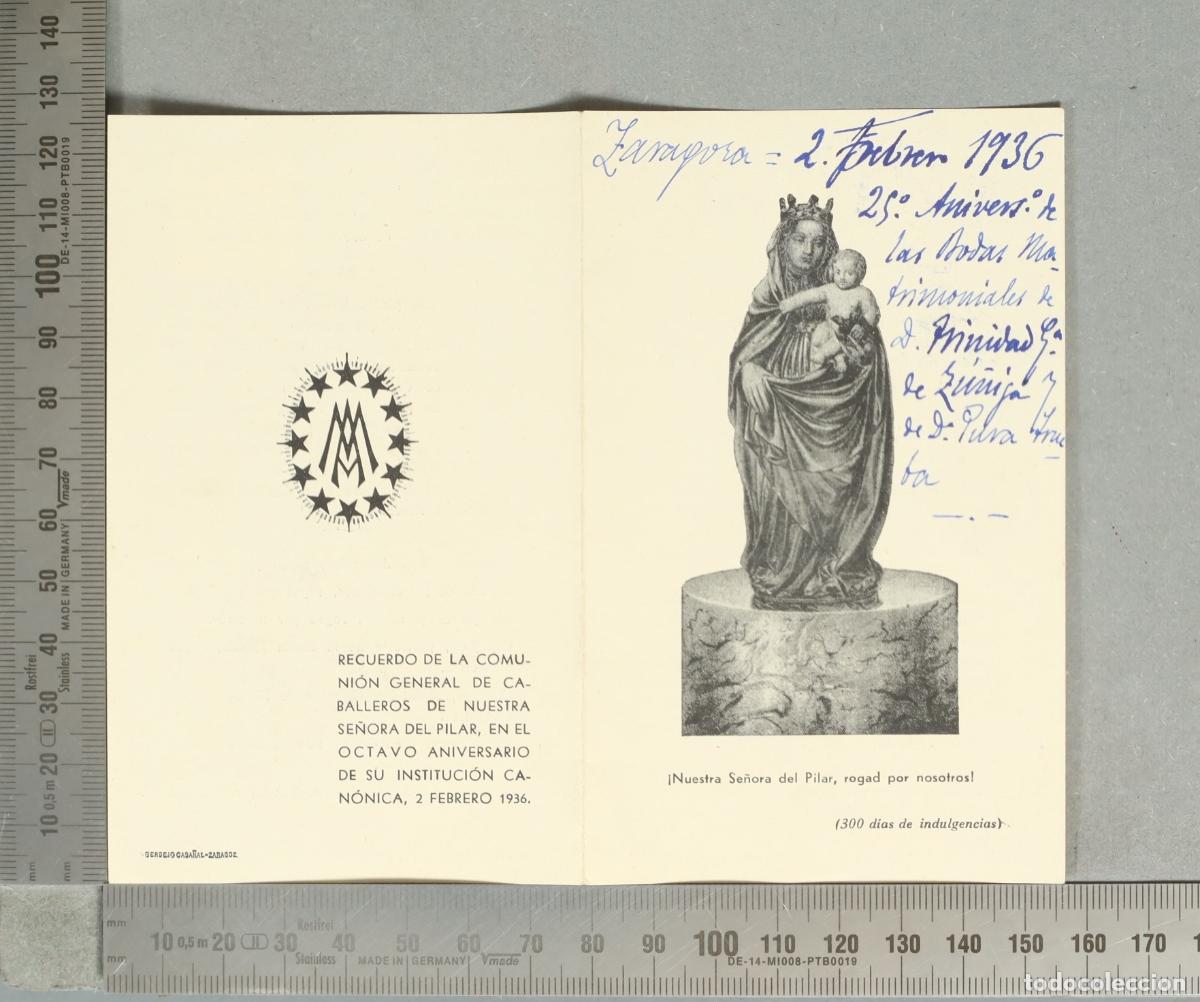 RECUERDO DE LA COMU-
NIÓN GENERAL DE CA-
BALLEROS DE NUESTRA
SEÑORA DEL PILAR, EN EL
OCTAVO ANIVERSARIO
DE SU INSTITUCIÓN CA-
NÓNICA, 2 FEBRERO 1936.
Zaragoza = 2. Febrero 1936
25º. Anivers.º de
las Bodas Ma-
trimoniales de
D. Trinidad Gª
de Zúñiga y
de Dª Pura
ba
¡Nuestra Señora del Pilar, rogad por nosotros!
(300 días de indulgencias)
140
130
120
110
100
90
80
70
60
50
40
30
20
10
DE-14-MI008-PTB0019
Vmade
MADE IN GERMANY
Rostfrei
Stainless
II
0,5 m
mm
mm
mm
mm
Rostfrei
10 0,5 m 20 II 30 40 50 60 70 80 90 100 110 120 130 140 150 160 170
Stainless MADE IN GERMANY Vmade DE-14-MI008-PTB0019
todocoleccion